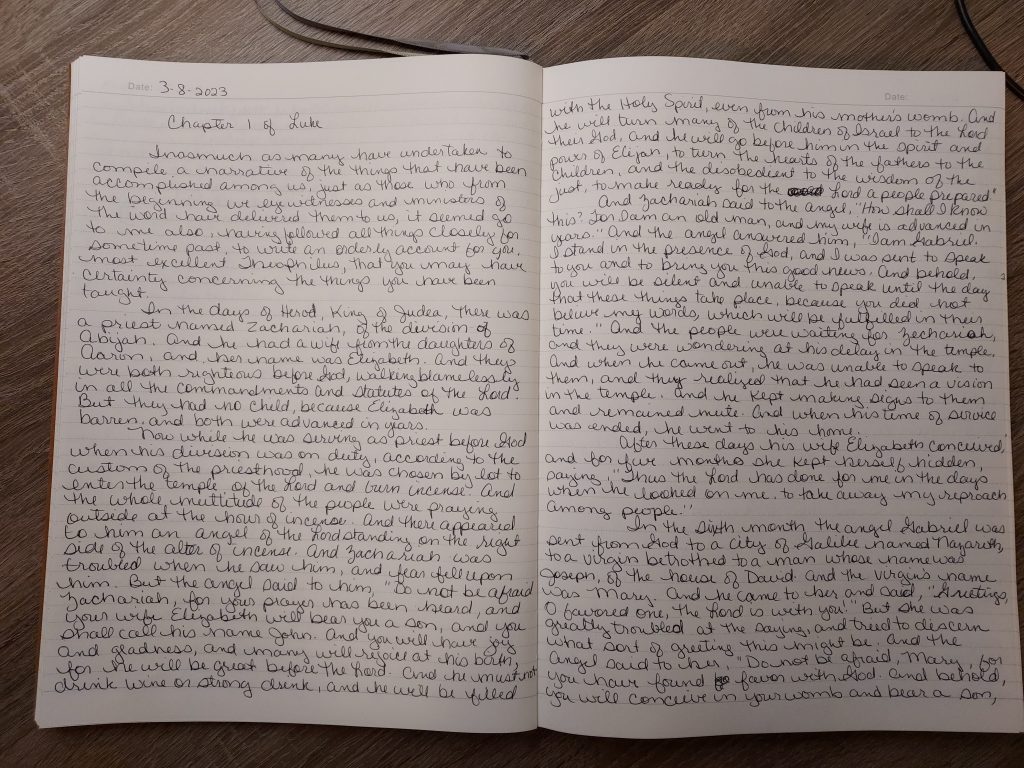 Date: 3-8-2023
Chapter 1 of Luke
Inasmuch as many have undertaken to
compile a narrative of the things that have been
accomplished among us, just as those who from
the beginning we eyewitnesses and ministers of
the word have delivered them to us, it seemed go
to me also, having followed all things closely for
sometime past, to write an orderly account for you,
most excellent Theophilus, that you may have
certainty concerning the things you have been
taught.
In the days of Herod, King of Judea, there was
a priest named Zachariah, of the division of
Abijah. And he had a wife from the daughters of
Aaron, and her name was Elizabeth. And they
were both rightious before God, walking blamelessly
in all the commandments and statutes of the Lord.
But they had no child, because Elizabeth was
barren, and both were advanced in years.
Now while he was serving as priest before God
when his division was on duty, according to the
custom of the priesthood, he was chosen by lot to
enter the temple of the Lord and burn incense. And
the whole multitude of the people were praying
outside at the hour of incense. And there appeared
to him an angel of the Lord standing on the right
side of the alter of incense. And Zachariah was
troubled when he saw him, and fear fell upon
him. But the angel said to him, "Do not be afraid
Zachariah, for your prayer has been heard, and
your wife Elizabeth will bear you a son, and you
shall call his name John. And you will have joy
and gladness, and many will rejoice at his birth,
for he will be great before the Lord. And he must not
drink wine or strong drink, and he will be filled
Date:
with the Holy Spirit, even from his mother's womb. And
he will turn many of the children of Israel to the Lord
their God, and he will go before him in the spirit and
power of Elijah, to turn the hearts of the fathers to the
children, and the disobedient to the wisdom of the
just, to make ready for the Lord a people prepared"
And Zachariah said to the angel, "How shall I know
this? For I am an old man, and my wife is advanced in
years." And the angel answered him, "I am Gabriel.
I stand in the presence of God, and I was sent to speak
to you and to bring you this good news. And behold,
you will be silent and unable to speak until the day
that these things take place, because you did not
believe my words, which will be fulfilled in their
time." And the people were waiting for Zechariah,
and they were wondering at his delay in the temple.
And when he came out, he was unable to speak to
them, and they realized that he had seen a vision
in the temple. And he kept making signs to them
and remained mute. And when his time of service
was ended, he went to his home.
After these days his wife Elizabeth conceived,
and for five months she kept herself hidden,
saying, "Thus the Lord has done for me in the days
when he looked on me. to take away my reproach
among people."
In the sixth month the angel Gabriel was
sent from God to a city of Galilee named Nazareth,
to a virgin betrothed to a man whose name was
Joseph, of the house of David. and the virgin's name
was Mary. And he came to her and said, "Greetings,
O favored one, the Lord is with you!" But she was
greatly troubled at the saying, and tried to discern
what sort of greeting this might be. And the
angel said to her, "Do not be afraid, Mary, for
you have found favor with God. And behold,
you will conceive in your womb and bear a son,